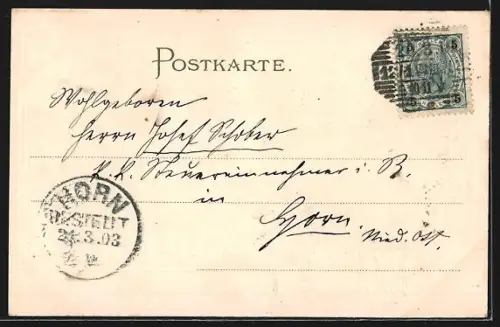 POSTKARTE.
Wohlgeboren
Herrn Josef Schober
K. K. Steuereinnehmer i. B.
in
Horn.
Nied. Öst.
HORN
BESTELLT
3.03
5 5
5 5